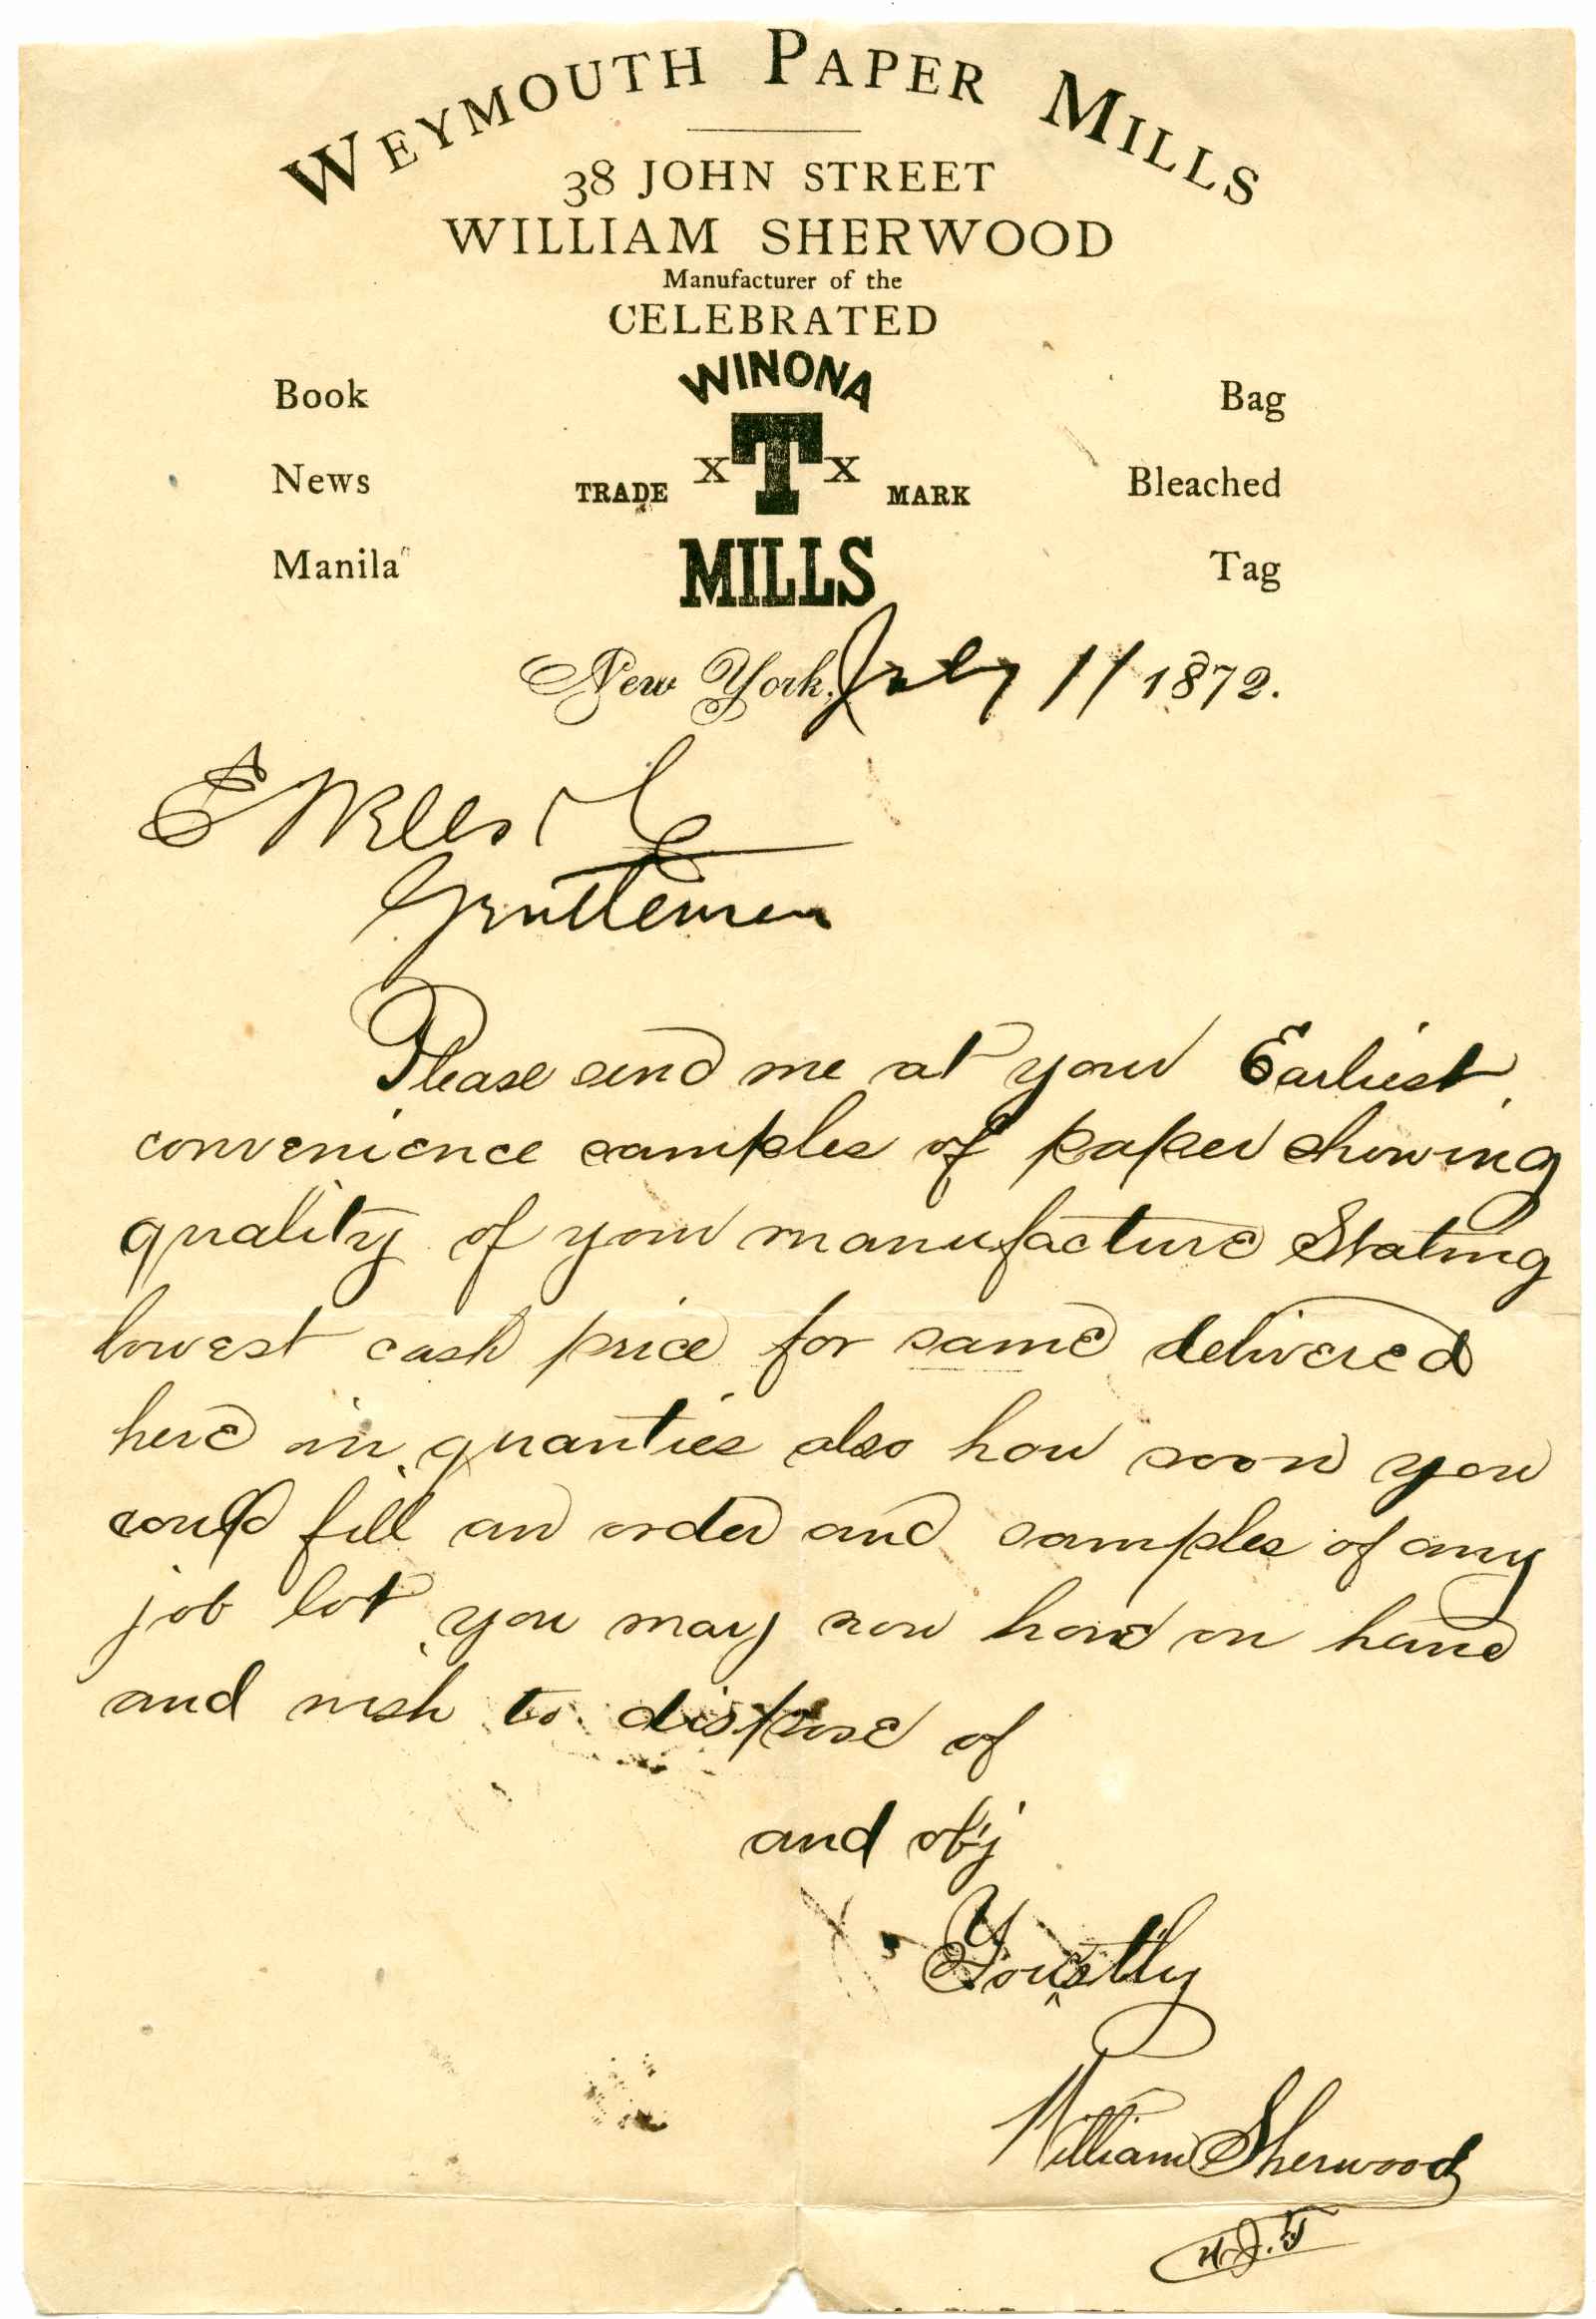 WEYMOUTH PAPER MILLS
38 JOHN STREET
WILLIAM SHERWOOD
Manufacturer of the
CELEBRATED
WINONA
Book
Bag
X T X
News
TRADE MARK
Bleached
Manila
MILLS
Tag
New York, July 11 1872.
E Wells
Gentlemen
Please send me at your Earliest
convenience samples of paper showing
quality of your manufacture Stating
lowest cash price for same delivered
here in quanties also how soon you
could fill an order and samples of any
job lot you may now have on hand
and wish to dispose of
and obj
Yours tly
William Sherwood
H.J.T